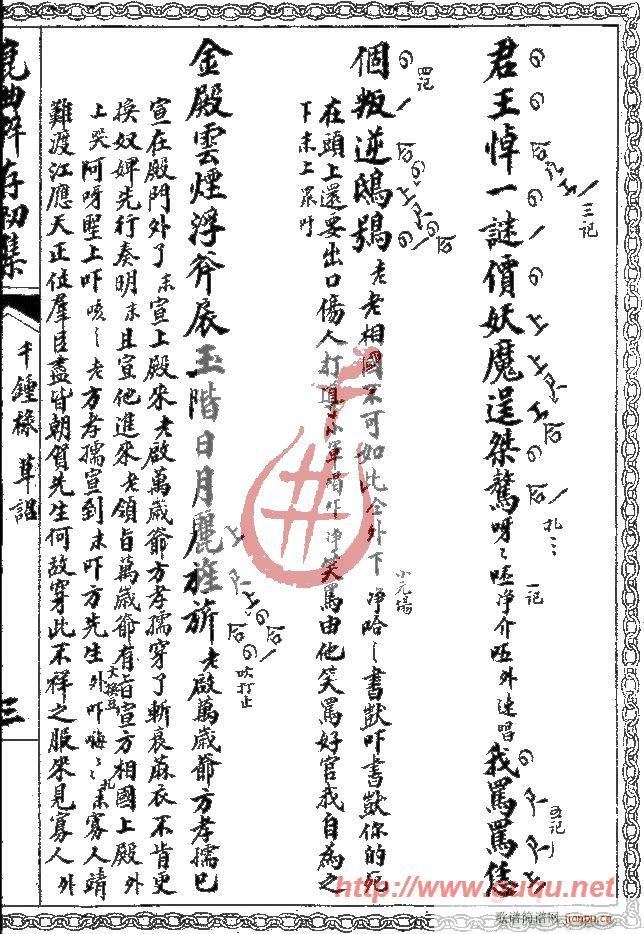 君王悼一謎價妖魔逞桀驁呀〻呸净介呸外連唱我罵罵恁
個叛逆鴟鴞老老相國不可如此仝外下净哈〻書獃吓書獃你的死
在頭上還要出口傷人打導小軍喏吓净笑罵由他笑罵好官我自為之
下末上眾吁
金殿雲煙浮斧扆玉階日月麗旌旂老啟萬歲爺方孝孺已
宣在殿門外了末宣上殿來老啟萬歲爺方孝孺穿了斬衰蔴衣不肯更
換奴婢先行奏明末且宣他進來老領旨萬歲爺有旨宣方相國上殿外
上哭阿呀聖上吓咳〻老方孝孺宣到末吓方先生外吓嗨〻末寡人靖
難渡江應天正位羣臣盡皆朝賀先生何故穿此不祥之服來見寡人外
崑曲粹存初集
千鍾祿 草詔
三
http://www.guqu.net
歌谱简谱网
jianpu.cn